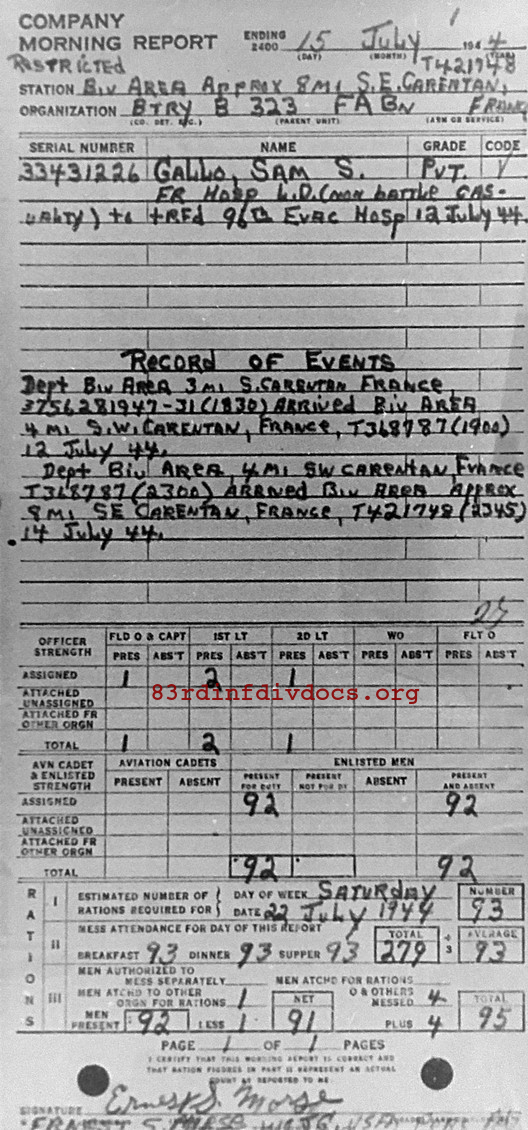 1
COMPANY
MORNING REPORT ENDING 2400 15 July 1944
(DAY) (MONTH) (YEAR)
RESTRICTED T421748
STATION Biv AREA APProx 8 Mi S.E. CARENTAN,
ORGANIZATION BTRY B 323 FA Bn FRANCE
(CO. DET. ETC.) (PARENT UNIT) (ARM OR SERVICE)
SERIAL NUMBER NAME GRADE CODE
33431226 GALLO, SAM S. Pvt. V
FR Hosp L.D. (NON BATTLE CAS-
UALTY) to tRFd 96th EVAC Hosp 12 July 44.
RECORD OF EVENTS
Dept Biv AREA 3 Mi S. CARENTAN FRANCE,
3756281947-J1 (1830) ARRIVED Biv AREA
4 Mi S.W. CARENTAN, FRANCE, T368787 (1900)
12 July 44.
Dept Biv AREA, 4 Mi SW CARENTAN, France
T368787 (2300) ARRIVED Biv AREA APProx
8 Mi SE CARENTAN, FRANCE, T421748 (2345)
14 July 44.
OFFICER STRENGTH FLD O & CAPT 1ST LT 2D LT WO FLT O
PRES ABS'T PRES ABS'T PRES ABS'T PRES ABS'T PRES ABS'T
ASSIGNED 1 2 1
ATTACHED UNASSIGNED
83rdinfdivdocs.org
ATTACHED FR OTHER ORGN
TOTAL 1 2 1
AVN CADET & ENLISTED STRENGTH AVIATION CADETS ENLISTED MEN
PRESENT ABSENT PRESENT FOR DUTY PRESENT NOT FOR DY ABSENT PRESENT AND ABSENT
ASSIGNED 92 92
ATTACHED UNASSIGNED
ATTACHED FR OTHER ORGN
TOTAL 92 92
RATIONS
I ESTIMATED NUMBER OF RATIONS REQUIRED FOR DAY OF WEEK SATURDAY NUMBER
DATE 22 July 1944 93
II MESS ATTENDANCE FOR DAY OF THIS REPORT TOTAL ÷ 3 AVERAGE
BREAKFAST 93 DINNER 93 SUPPER 93 279 93
III MEN AUTHORIZED TO MESS SEPARATELY MEN ATCHD FOR RATIONS
MEN ATCHD TO OTHER ORGN FOR RATIONS 1 NET O & OTHERS MESSED 4 TOTAL
MEN PRESENT 92 LESS 1 91 PLUS 4 95
PAGE 1 OF 1 PAGES
I CERTIFY THAT THIS MORNING REPORT IS CORRECT AND
THAT RATION FIGURES IN PART III REPRESENT AN ACTUAL
COUNT AS REPORTED TO ME
SIGNATURE Ernest S. Morse
ERNEST S. MORSE